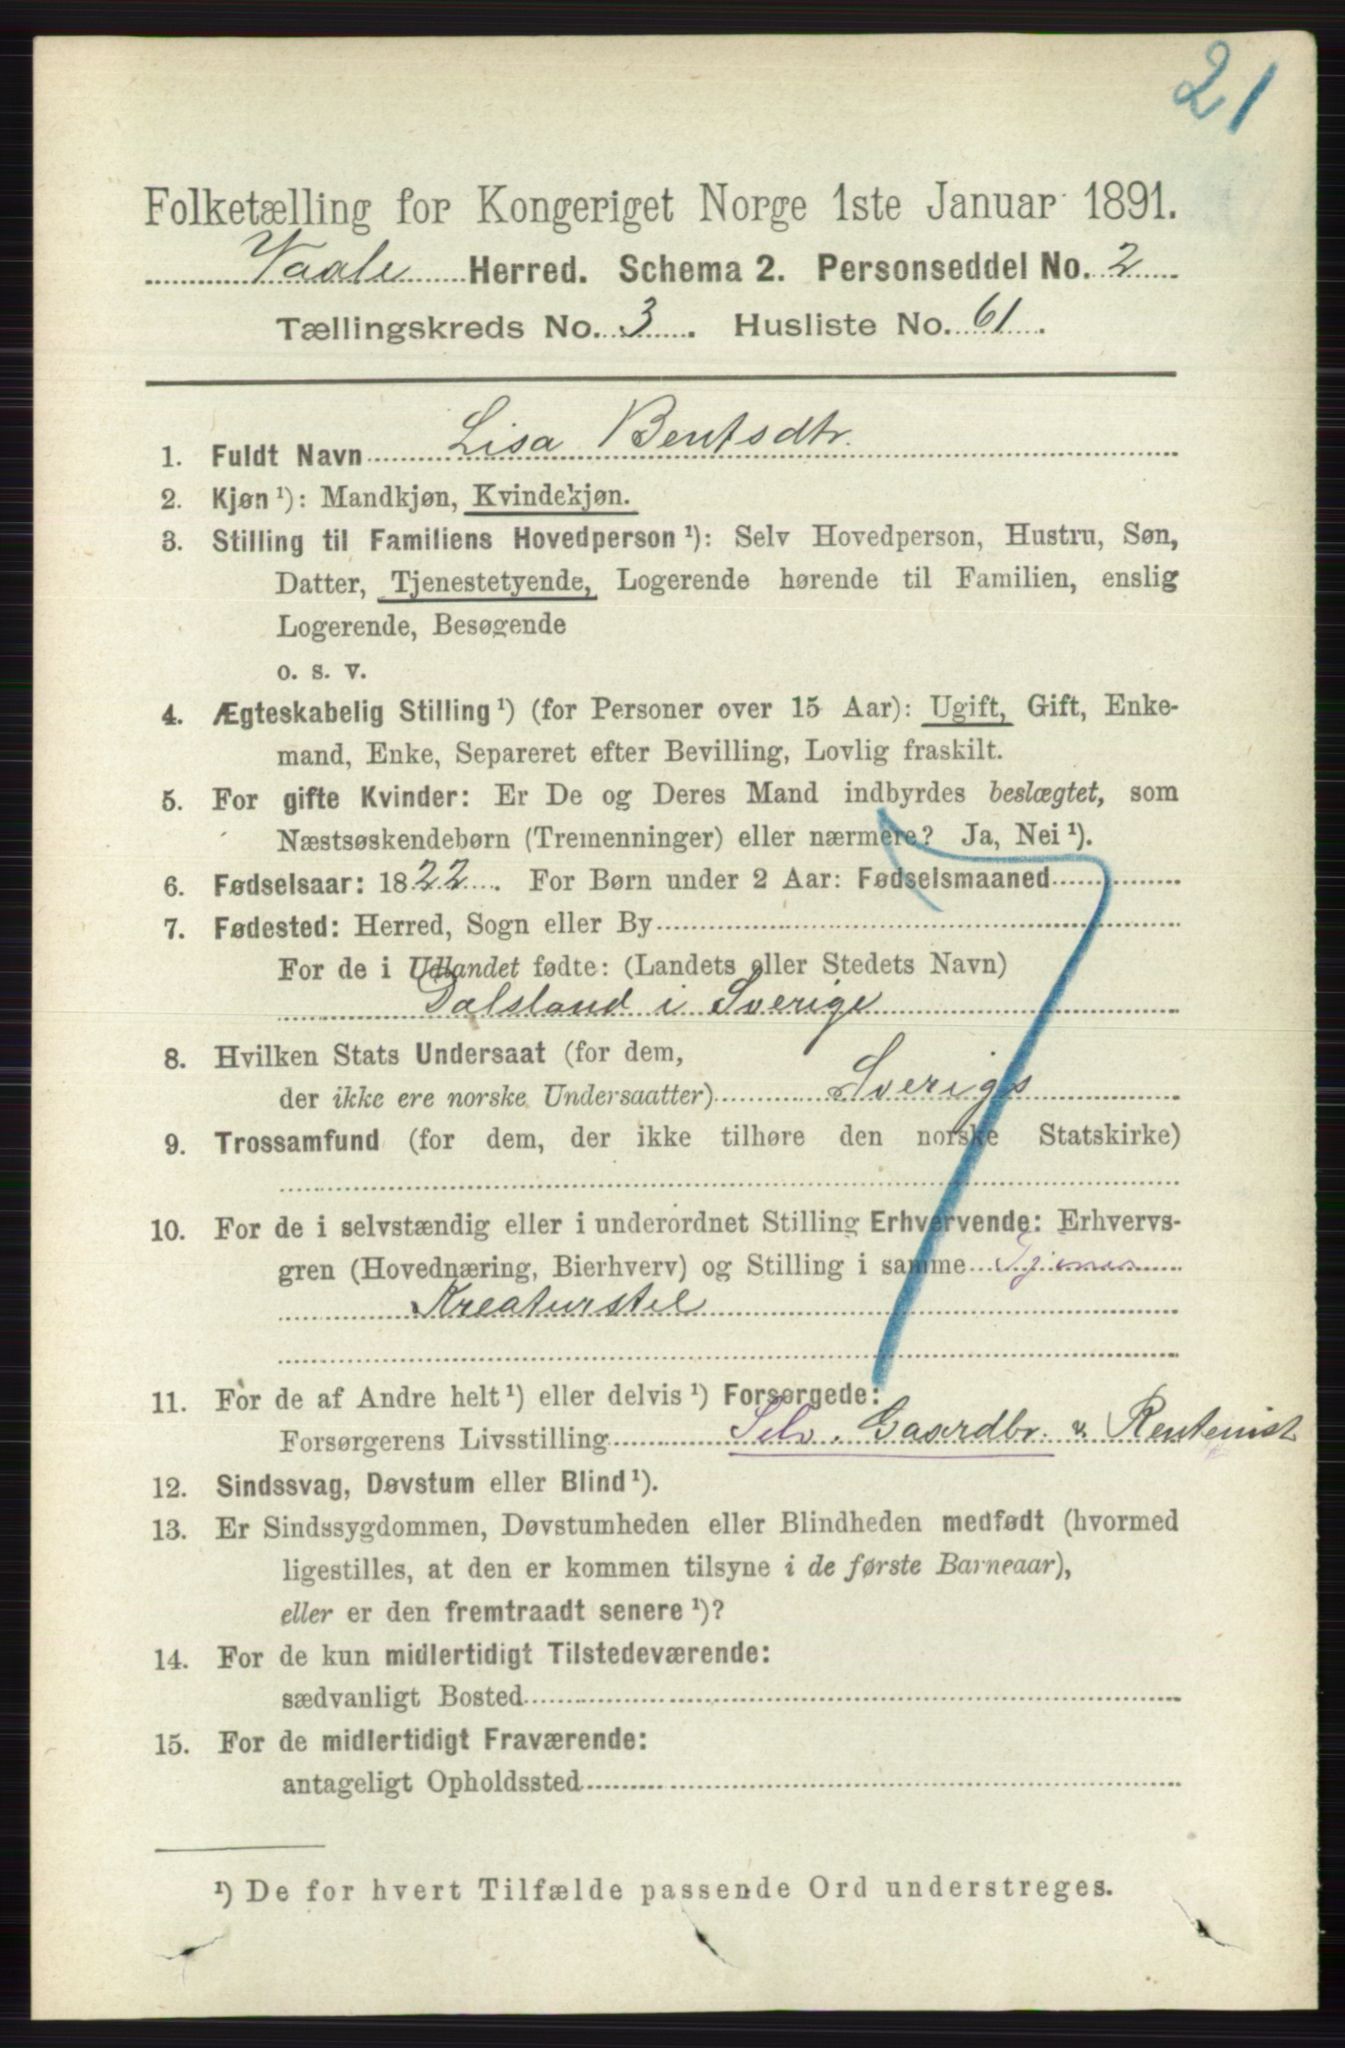 21
Folketælling for Kongeriget Norge 1ste Januar 1891.
Vaale Herred. Schema 2. Personseddel No. 2
Tællingskreds No. 3. Husliste No. 61.
1. Fuldt Navn Lisa Bentsdtr.
2. Kjøn ¹): Mandkjøn, Kvindekjøn.
3. Stilling til Familiens Hovedperson ¹): Selv Hovedperson, Hustru, Søn,
Datter, Tjenestetyende, Logerende hørende til Familien, enslig
Logerende, Besøgende
o. s. v.
4. Ægteskabelig Stilling ¹) (for Personer over 15 Aar): Ugift, Gift, Enke-
mand, Enke, Separeret efter Bevilling, Lovlig fraskilt.
5. For gifte Kvinder: Er De og Deres Mand indbyrdes beslægtet, som
Næstsøskendebørn (Tremenninger) eller nærmere? Ja, Nei ¹).
6. Fødselsaar: 1822. For Børn under 2 Aar: Fødselsmaaned
7. Fødested: Herred, Sogn eller By
For de i Udlandet fødte: (Landets eller Stedets Navn)
Dalsland i Sverige
8. Hvilken Stats Undersaat (for dem,
der ikke ere norske Undersaatter) Sverigs
9. Trossamfund (for dem, der ikke tilhøre den norske Statskirke)
10. For de i selvstændig eller i underordnet Stilling Erhvervende: Erhvervs-
gren (Hovednæring, Bierhverv) og Stilling i samme
Kreaturstel
11. For de af Andre helt ¹) eller delvis ¹) Forsørgede:
Forsørgerens Livsstilling Selv. Gaardbr. Rentenist
12. Sindssvag, Døvstum eller Blind ¹).
13. Er Sindssygdommen, Døvstumheden eller Blindheden medfødt (hvormed
ligestilles, at den er kommen tilsyne i de første Barneaar),
eller er den fremtraadt senere ¹)?
14. For de kun midlertidigt Tilstedeværende:
sædvanligt Bosted
15. For de midlertidigt Fraværende:
antageligt Opholdssted
¹) De for hvert Tilfælde passende Ord understreges.